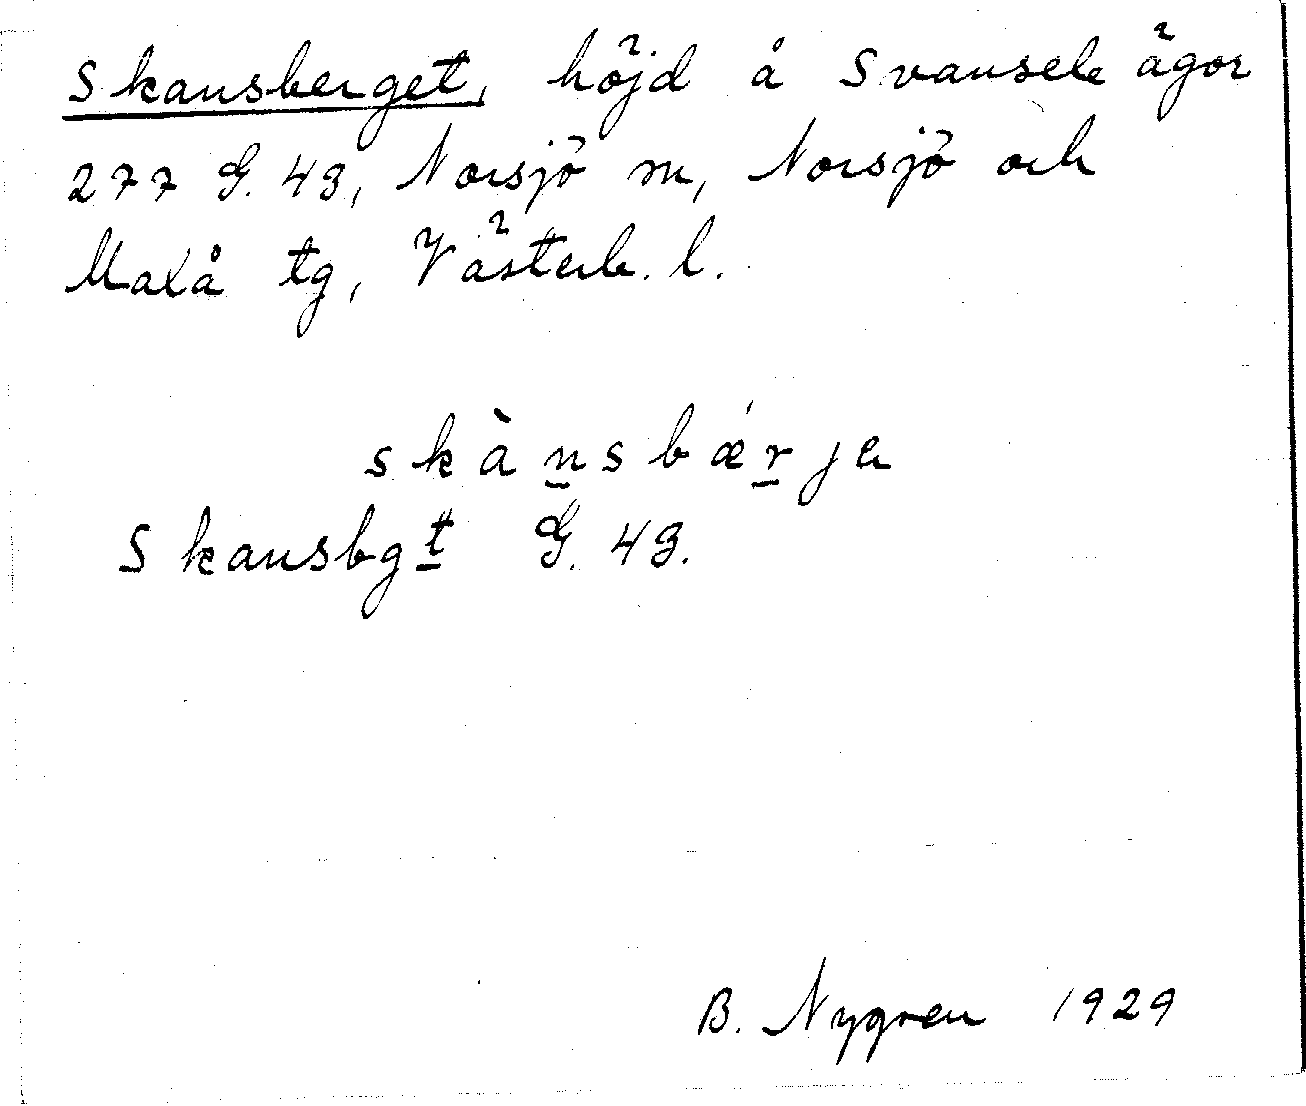 Skansberget, höjd å Svansele ägor
277 G. 43, Norsjö m, Norsjö och
Malå tg, Västerb. l.
skànsbǽrje
Skansbgt G. 43.
B. Nygren 1929